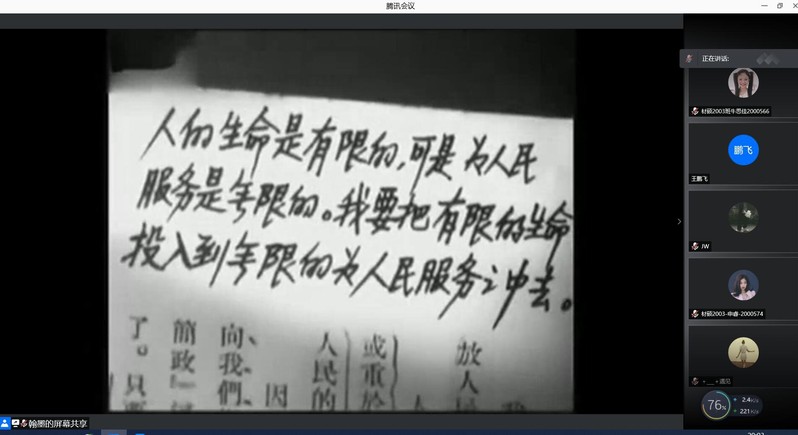 腾讯会议
正在讲话:
人的生命是有限的,可是为人民
服务是无限的。我要把有限的生命
投入到无限的为人民服务之中去。
了。只
簡政
向、我們、
因
人民的
或重於
放人
人
材硕2003班牛思佳2000566
鹏飞
王鹏飞
JW
材硕2003-申睿-2000574
遇见
76%
2.4K/s
221K/s
翰墨的屏幕共享